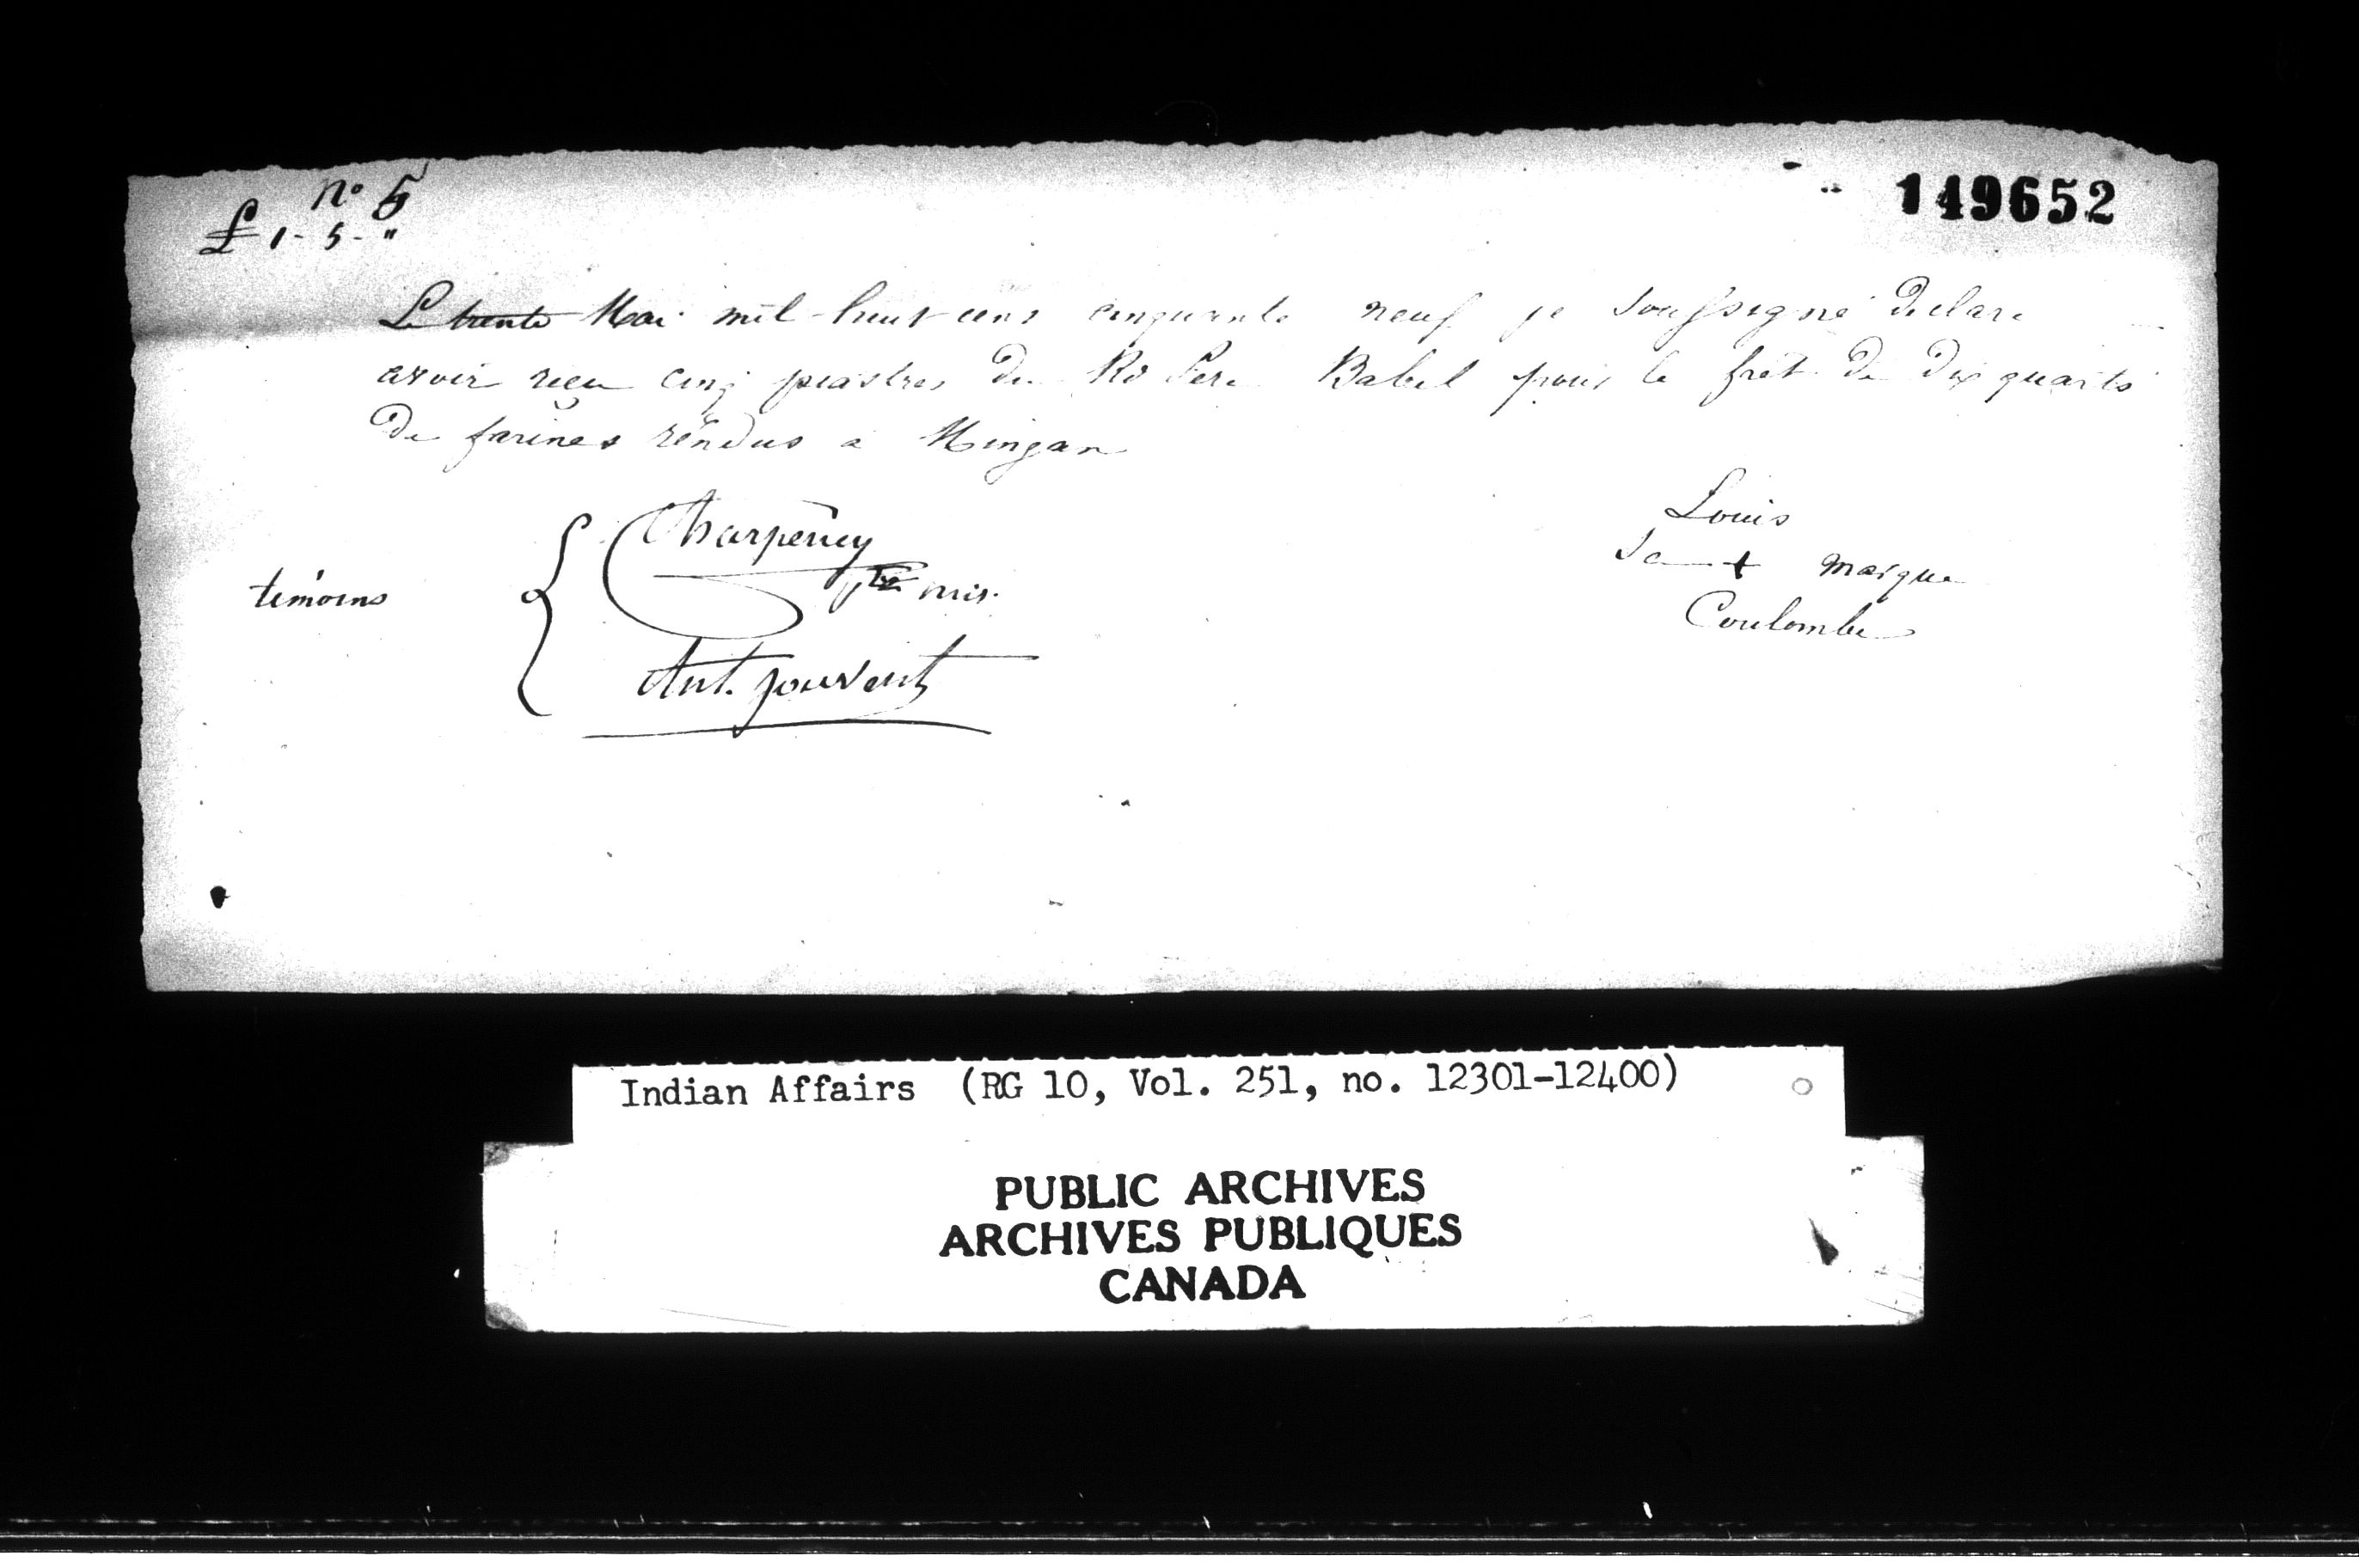 no 5
£ 1 - 5 - "
149652
Le trente Mai mil huit cens cinquante neuf je soussigné declare
avoir recu cinq piastres du Rd Pere Babel pour le fret de dix quarts
de farines rendus a Mingan
Louis
sa + marque
Coulombe
temoins
Charpeney
ptre mis.
Ant. jouvent
Indian Affairs (RG 10, Vol. 251, no. 12301-12400)
PUBLIC ARCHIVES
ARCHIVES PUBLIQUES
CANADA